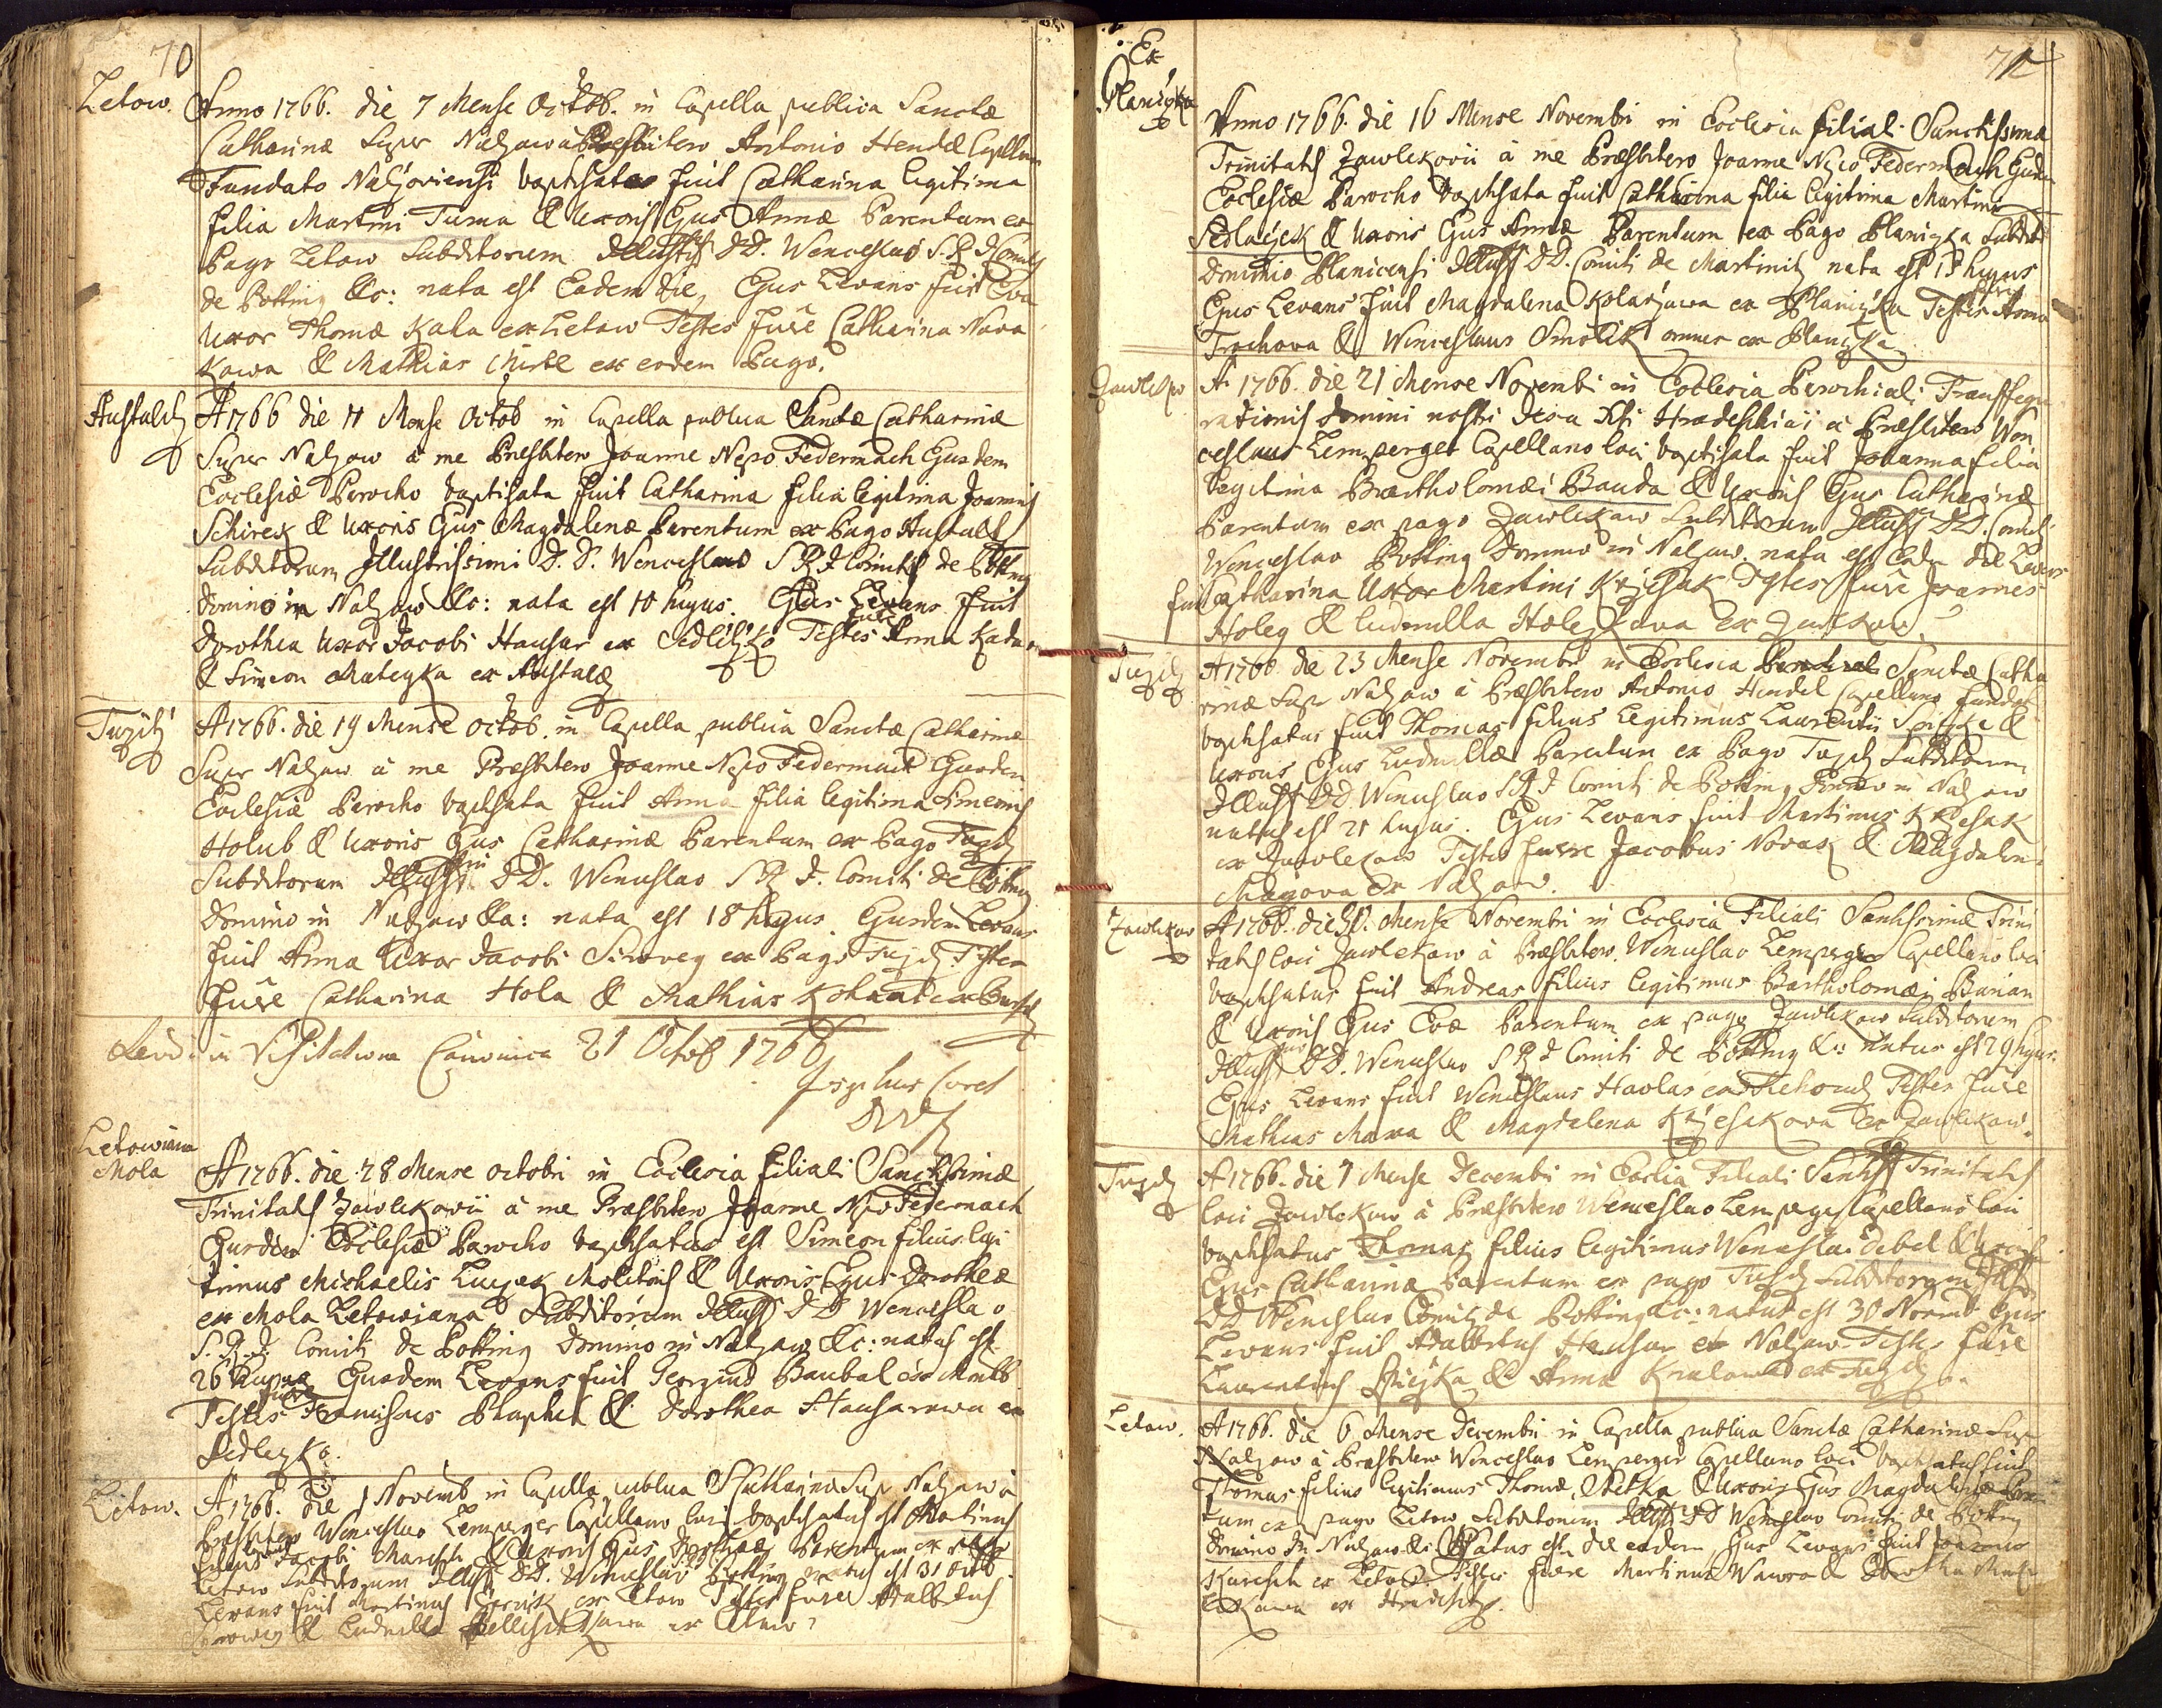 70
Letow. Anno 1766. die 7 Mense Octob. in Capella publica Sanctæ
Catharinæ Super Nalzow à Presbitero Antonio Hendel Capellan
Fundato Nalzoviensi baptisata fuit Catharina legitima
filia Martini Tuma & Uxoris Ejus Annæ Parentum ex
Pago Letow Subditorum Illustris DD. Wenceslao S. R. I Comiti
de Potting &c: nata est Eadem die, Ejus Levans fuit Eva
Uxor Thomæ Kala ex Letow Testes fuere Catharina Nova
kowa & Mathias ex eodem Pago.
Hustaldj A 1766 die 11 Mense Octob in Capella publica Sanctæ Catharinæ
Super Nalzow à me Presbitero Joanne Nepo Federmach Ejusdem
Ecclesiæ Parocho baptisata fuit Catharina filia legitima Joannis
Schirek & Uxoris Ejus Magdalenæ Parentum ex Pago Hustalt
Subditorum Illustrissimi D. D. Wenceslao S R I Comitis de Potting
Domino in Nalzow &c: nata est 10 hujus. Ejus Levans fuit
Dorothea Uxor Jacobi Hausar ex Sedletzko Testes fuere Anna
& Simeon Mateyka ex
Tujitz A 1766. die 19 Mense Octob. in Capella publica Sanctæ Catharinæ
Super Nalzow à me Presbitero Joanne Nepo Federmach Ejusdem
Ecclesiæ Parocho baptisata fuit Anna filia legitima Simeonis
Holub & Uxoris Ejus Catharinæ Parentum ex Pago Tujitz
Subditorum Illustss DD. Wenceslao S R I. Comiti de Potting
Domino in Nalzow &c: nata est 18 hujus. Ejusdem Levans
fuit Anna Uxor Jacobi ex Pago Tujitz Testes
fuere Catharina Hola & Mathias
in Visitatione Canonica 21 Octob 1766
Josephus
Letowiana
Mola
A 1766. die 28 Mense Octobri in Ecclesia filiali Sanctissimæ
Trinitatis Zawlekovii à me Præsbitero Joanne Nepo Federmach
Ejusdem Ecclesiæ Parocho baptisatus est Simeon filius legi
timus Michaelis Molitoris & Uxoris Ejus Dorotheæ
ex Mola Letowiana Subditorum Illuss D D Wenceslao
S. R. I. Comiti de Potting Domino in Nalzow &c: natus est
26 hujus Ejusdem Levans fuit Georgius Baubal
Testes fuere & Dorothea Hausarowa ex
Sedlezko.
Letow. A 1766. die 1 Novemb in Capella publica S Catharinæ Sup Nalzow à
Presbitero Wenceslao Lemperger Capellano loci baptisatus est Martinus
filius Jacobi Maresch & Uxoris Ejus Dorotheæ Parentum ex pago
Letow Subditorum Illuss DD. Wenceslao Potting natus est 31 Octob
Levans fuit Martinus ex Letow Testes fuere Adalbertus
& Ludmilla ex
Ex
Planizka
71
Anno 1766. die 16 Mense Novembri in Ecclesia filiali Sanctissima
Trinitatis Zawlekovii à me Præsbitero Joanne Nepo Federmach Ejusdem
Ecclesiæ Parocho baptisata fuit Catharina filia legitima Martini
Sedlaczek & Uxoris Ejus Annæ Parentum ex Pago Planizka Subdit
Dominio Planicensi Illuss DD. Comiti de Martinitz nata est 15 hujus
Ejus Levans fuit Magdalena Kolarzowa ex Planizka Testes fuere Anna
Trochova & Wenceslaus Smolik omnes ex Planizka
Zawlekow A 1766. die 21 Mense Novembri in Ecclesia Parochiali Transfigu
rationis Domini nostri Jesu Xti Hradeshicii à Præsbitero Wen
ceslao Lemperger Capellano loci baptisata fuit Johanna filia
legitima Bartholomæi Bauda & Uxoris Ejus Catharinæ
Parentum ex pago Zawlekow Subditorum Illuss DD. Comiti
Wenceslao Potting Domino in Nalzow. nata est Eade die Levans
fuit Catharina Uxor Martini Krzesak Testes fuere Joannes
Holeg & Ludmilla ex Zawlekow.
Tujitz A 1766 die 23 Mense Novembri in Ecclesia Sanctæ Catha
rinæ Supr Nalzow à Præsbitero Antonio Hendel Capellano fundat
baptisatus fuit Thomas filius legitimus Laurentii Spiczka &
Uxoris Ejus Ludmillæ Parentum ex Pago Tujitz Subditorum
Illuss DD. Wenceslao S R I Comiti de Potting Domino in Nalzow
natus est 21 hujus. Ejus Levans fuit Martinus Krzesak
ex Zawlekow Testes fuere Jacobus Novak & Magdalena
ex Nalzow.
Zawlekow A 1766. die 30. Mense Novembri in Ecclesia Filiali Sanctissimæ Trini
tatis loci Zawlekow à Præsbitero Wenceslao Lemperger Capellano loci
baptisatus fuit Andreas filius legitimus Bartholomæi Burian
& Uxoris Ejus Evæ Parentum ex pago Zawlekow Subditorum
Illuss DD. Wenceslao S R I Comiti de Potting &c: natus est 29 hujus.
Ejus Levans fuit Wenceslaus Havlas ex Testes fuere
Mathias & Magdalena Krzesakova ex Zawlekow.
Tujitz A 1766. die 1 Mense Decembri in Ecclia Filiali Sanctss Trinitatis
loci Zawlekow à Præsbitero Wenceslao Lemperger Capellano loci
baptisatus Thomas filius legitimus Wenceslai Debel & Uxoris
Ejus Catharinæ Parentum ex pago Tujitz Subditorum Illuss
DD Wenceslao Comiti de Potting &c: natus est 30 Novemb Ejus
Levans fuit Adalbertus Hausar ex Nalzow Testes fuere
Laurentius Spiczka & Anna Kralowa ex Tujitz.
Letow. A 1766. die 6 Mense Decembri in Capella publica Sanctæ Catharinæ Supr
Nalzow à Præsbitero Wenceslao Lemperger Capellano loci baptisatus fuit
Thomas filius legitimus Thomæ & Uxoris Ejus Magdalenæ Paren
tum ex pago Letow Subditorum Illuss DD Wenceslao Comiti de Potting
Domino in Nalzow &c Natus est die eadem Ejus Levans fuit Joannes
Karesch ex Letow Testes fuere Martinus Wawra & Dorothea
ex